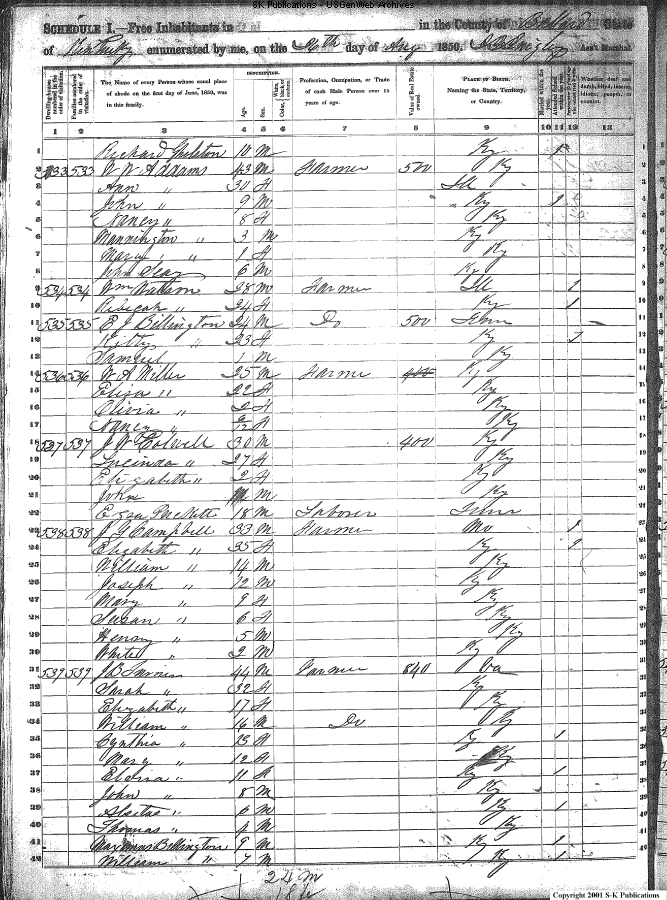 S-K Publications - USGenWeb Archives
SCHEDULE I.—Free Inhabitants in in the County of Ballard State
of Kentucky enumerated by me, on the 26th day of Aug 1850. Ass't Marshal.
Dwelling-houses numbered in the order of visitation.
Families numbered in the order of visitation.
The Name of every Person whose usual place of abode on the first day of June, 1850, was in this family.
DESCRIPTION.
Age.
Sex.
Color, White, black or mulatto.
Profession, Occupation, or Trade of each Male Person over 15 years of age.
Value of Real Estate owned.
PLACE OF BIRTH. Naming the State, Territory, or Country.
Married within the year.
Attended School within the year.
Whether deaf and dumb, blind, insane, idiotic, pauper, or convict.
1 2 3 4 5 6 7 8 9 10 11 12 13
1 Richard 10 M Ky 1
2 533 533 W W Addams 43 M Farmer 500 Ky
3 Ann " 30 F Ill
4 John " 9 M Ky 1
5 Nancy " 8 F Ky
6 Mannington " 3 M Ky
7 Mary " 1 F Ky
8 John Seay 6 M Ky
9 534 534 Wm Watson 28 M Farmer Ill 1
10 24 F Ky 1
11 535 535 E J Billington 24 M Do 500 Tenn
12 " 23 F Ky 1
13 Samuel 1 M Ky
14 536 536 W A Miller 25 M Farme Ky
15 Eliza " 22 F Ky
16 Olivia " 2 F Ky
17 Nancy " 6/12 F Ky
18 537 537 J W Colwell 30 M 400 Ky
19 Lucinda " 27 F Ky
20 Elizabeth " 2 F Ky
21 John M Ky
22 18 M Laborer Tenn
23 538 538 J G Campbell 33 M Farmer Mo 1
24 Elizabeth " 35 F Ky 1
25 William " 14 M Ky
26 Joseph " 12 M Ky
27 Mary " 9 F Ky
28 Susan " 6 F Ky
29 Henry " 5 M Ky
30 White " 2 M Ky
31 539 539 J B Turner 44 M Farmer 840 Va
32 Sarah " 32 F Ky
33 Elizabeth " 17 F Ky
34 William " 16 M Do Ky
35 Cynthia " 13 F Ky 1
36 Mary " 12 F Ky
37 " 11 F Ky 1
38 John " 8 M Ky
39 " 6 M Ky 1
40 Thomas " 4 M Ky
41 Billington 9 M Ky 1
42 William " 7 M Ky 1
24 m
18 f
Copyright 2001 S-K Publications